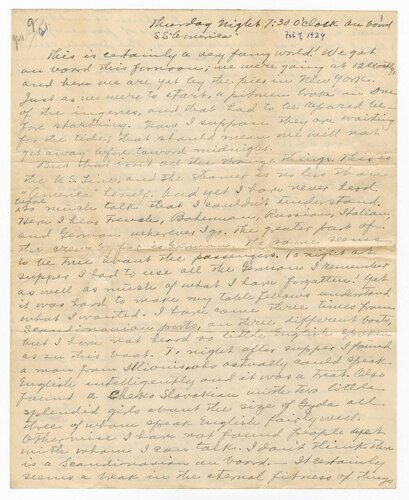 Thursday Night 7:30 O'clock On board
SS "America" Feb 7, 1924
This is certainly a very funny world! We got
on board this forenoon; we were going at 12 exactly,
and here we are yet by the pier in New York.
Just as we were to start, a piston broke in one
of the engines, and that had to be repaired be-
fore starting. Now I suppose they are waiting
for the tide; that should mean we will not
get away before toward midnight.
But that isn't all the strange things. This is
the U.S. Line, and the steamer is no less than
"America" herself. And yet I have never heard
before so much talk that I couldn't understand.
Here I hear French, Bohemian, Russian, Italian,
and German wherever I go. The greater part of
the crew by far is German. The same seems
to be true about the passengers. To night at
supper I had to use all the German I remember
as well as much of what I have forgotten! but
it was hard to make my table fellows understand
what I wanted. I have come three times from
Scandinavian ports, on three different boats,
but I have not heard so little English spoken
as on this boat. To night after supper I found
a man from Illinois, who actually could speak
English intelligently and it was a treat. Also
found a Cheko Slovakian with two little
splendid girls about the size of Gyda all
three of whom speak English fairly well.
Otherwise I have not found people yet
with whom I can talk. I don't think there
is a Scandinavian on board. It certainly
seems a break in the eternal fitness of things